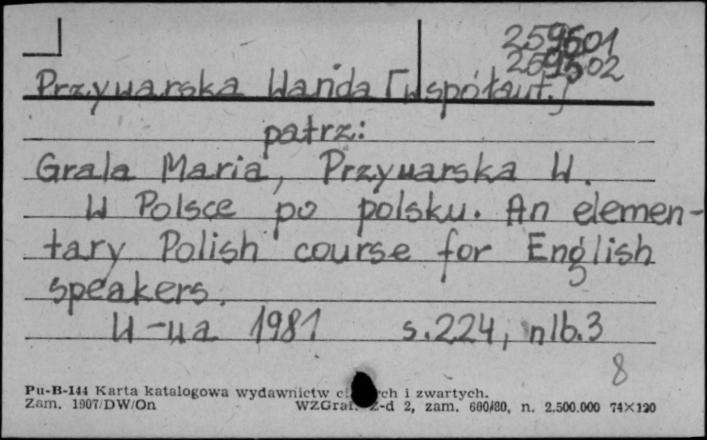 259501
259502
Przywarska Wanda [współaut.]
patrz:
Grala Maria, Przywarska W.
W Polsce po polsku. An elemen-
tary Polish course for English
speakers.
W-wa 1981 s.224, nlb.3
8
Pu-B-144 Karta katalogowa wydawnictw i zwartych.
Zam. 1907/DW/On WZGraf. Z-d 2, zam. 660/80, n. 2.500.000 74×120